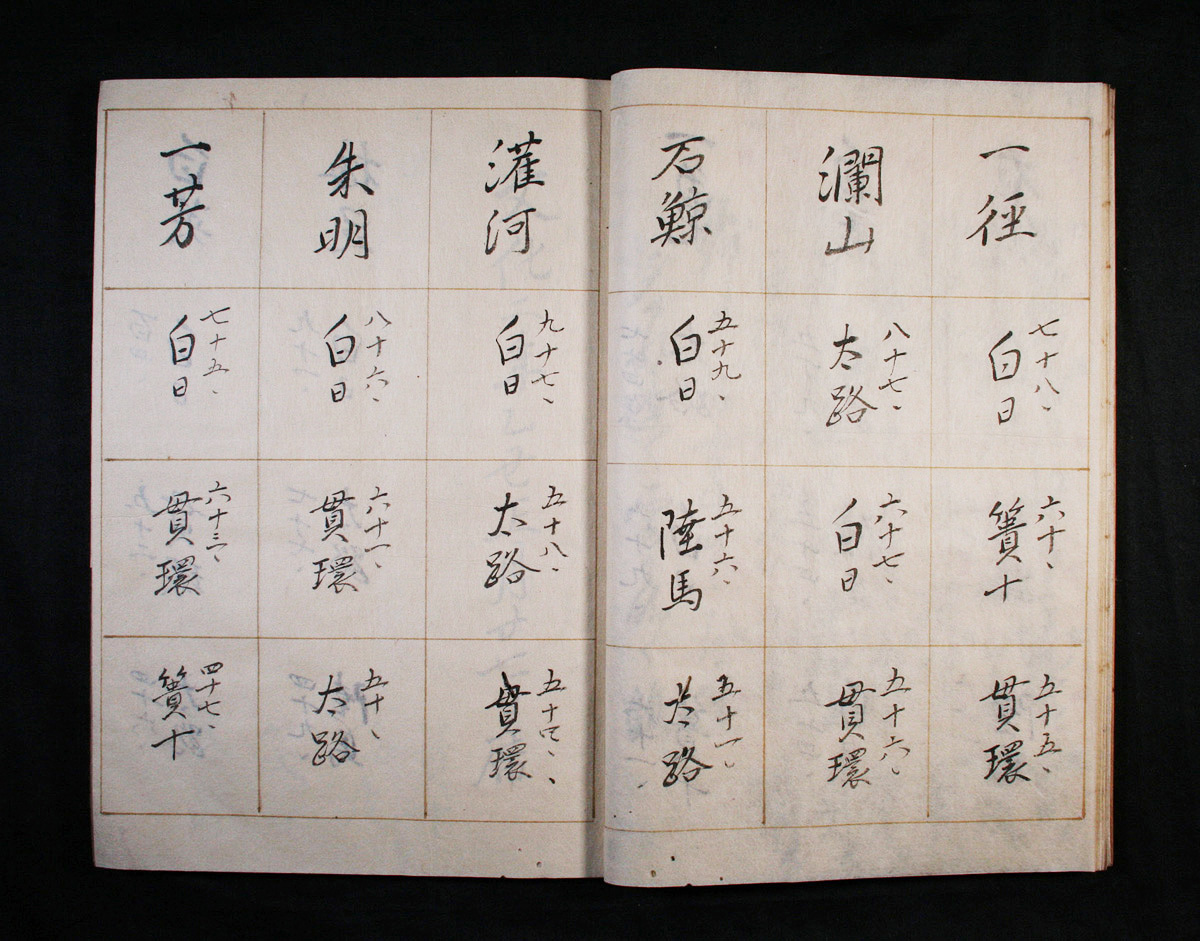 一徑
七十八、
白日
六十、
簣十
五十五、
貫環
瀾山
八十七、
太路
六十七、
白日
五十六、
貫環
石鯨
五十九、
白日
五十六、
陸馬
五十一、
太路
灌河
九十七、
白日
五十八、
太路
五十四、
貫環
朱明
八十六、
白日
六十一、
貫環
五十、
太路
一芳
七十五、
白日
六十三、
貫環
四十七、
簣十